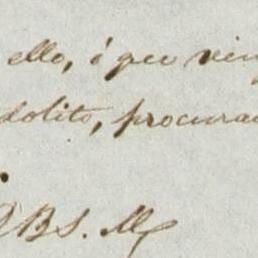 ello, ó que ven
dolito, procura
BS. M